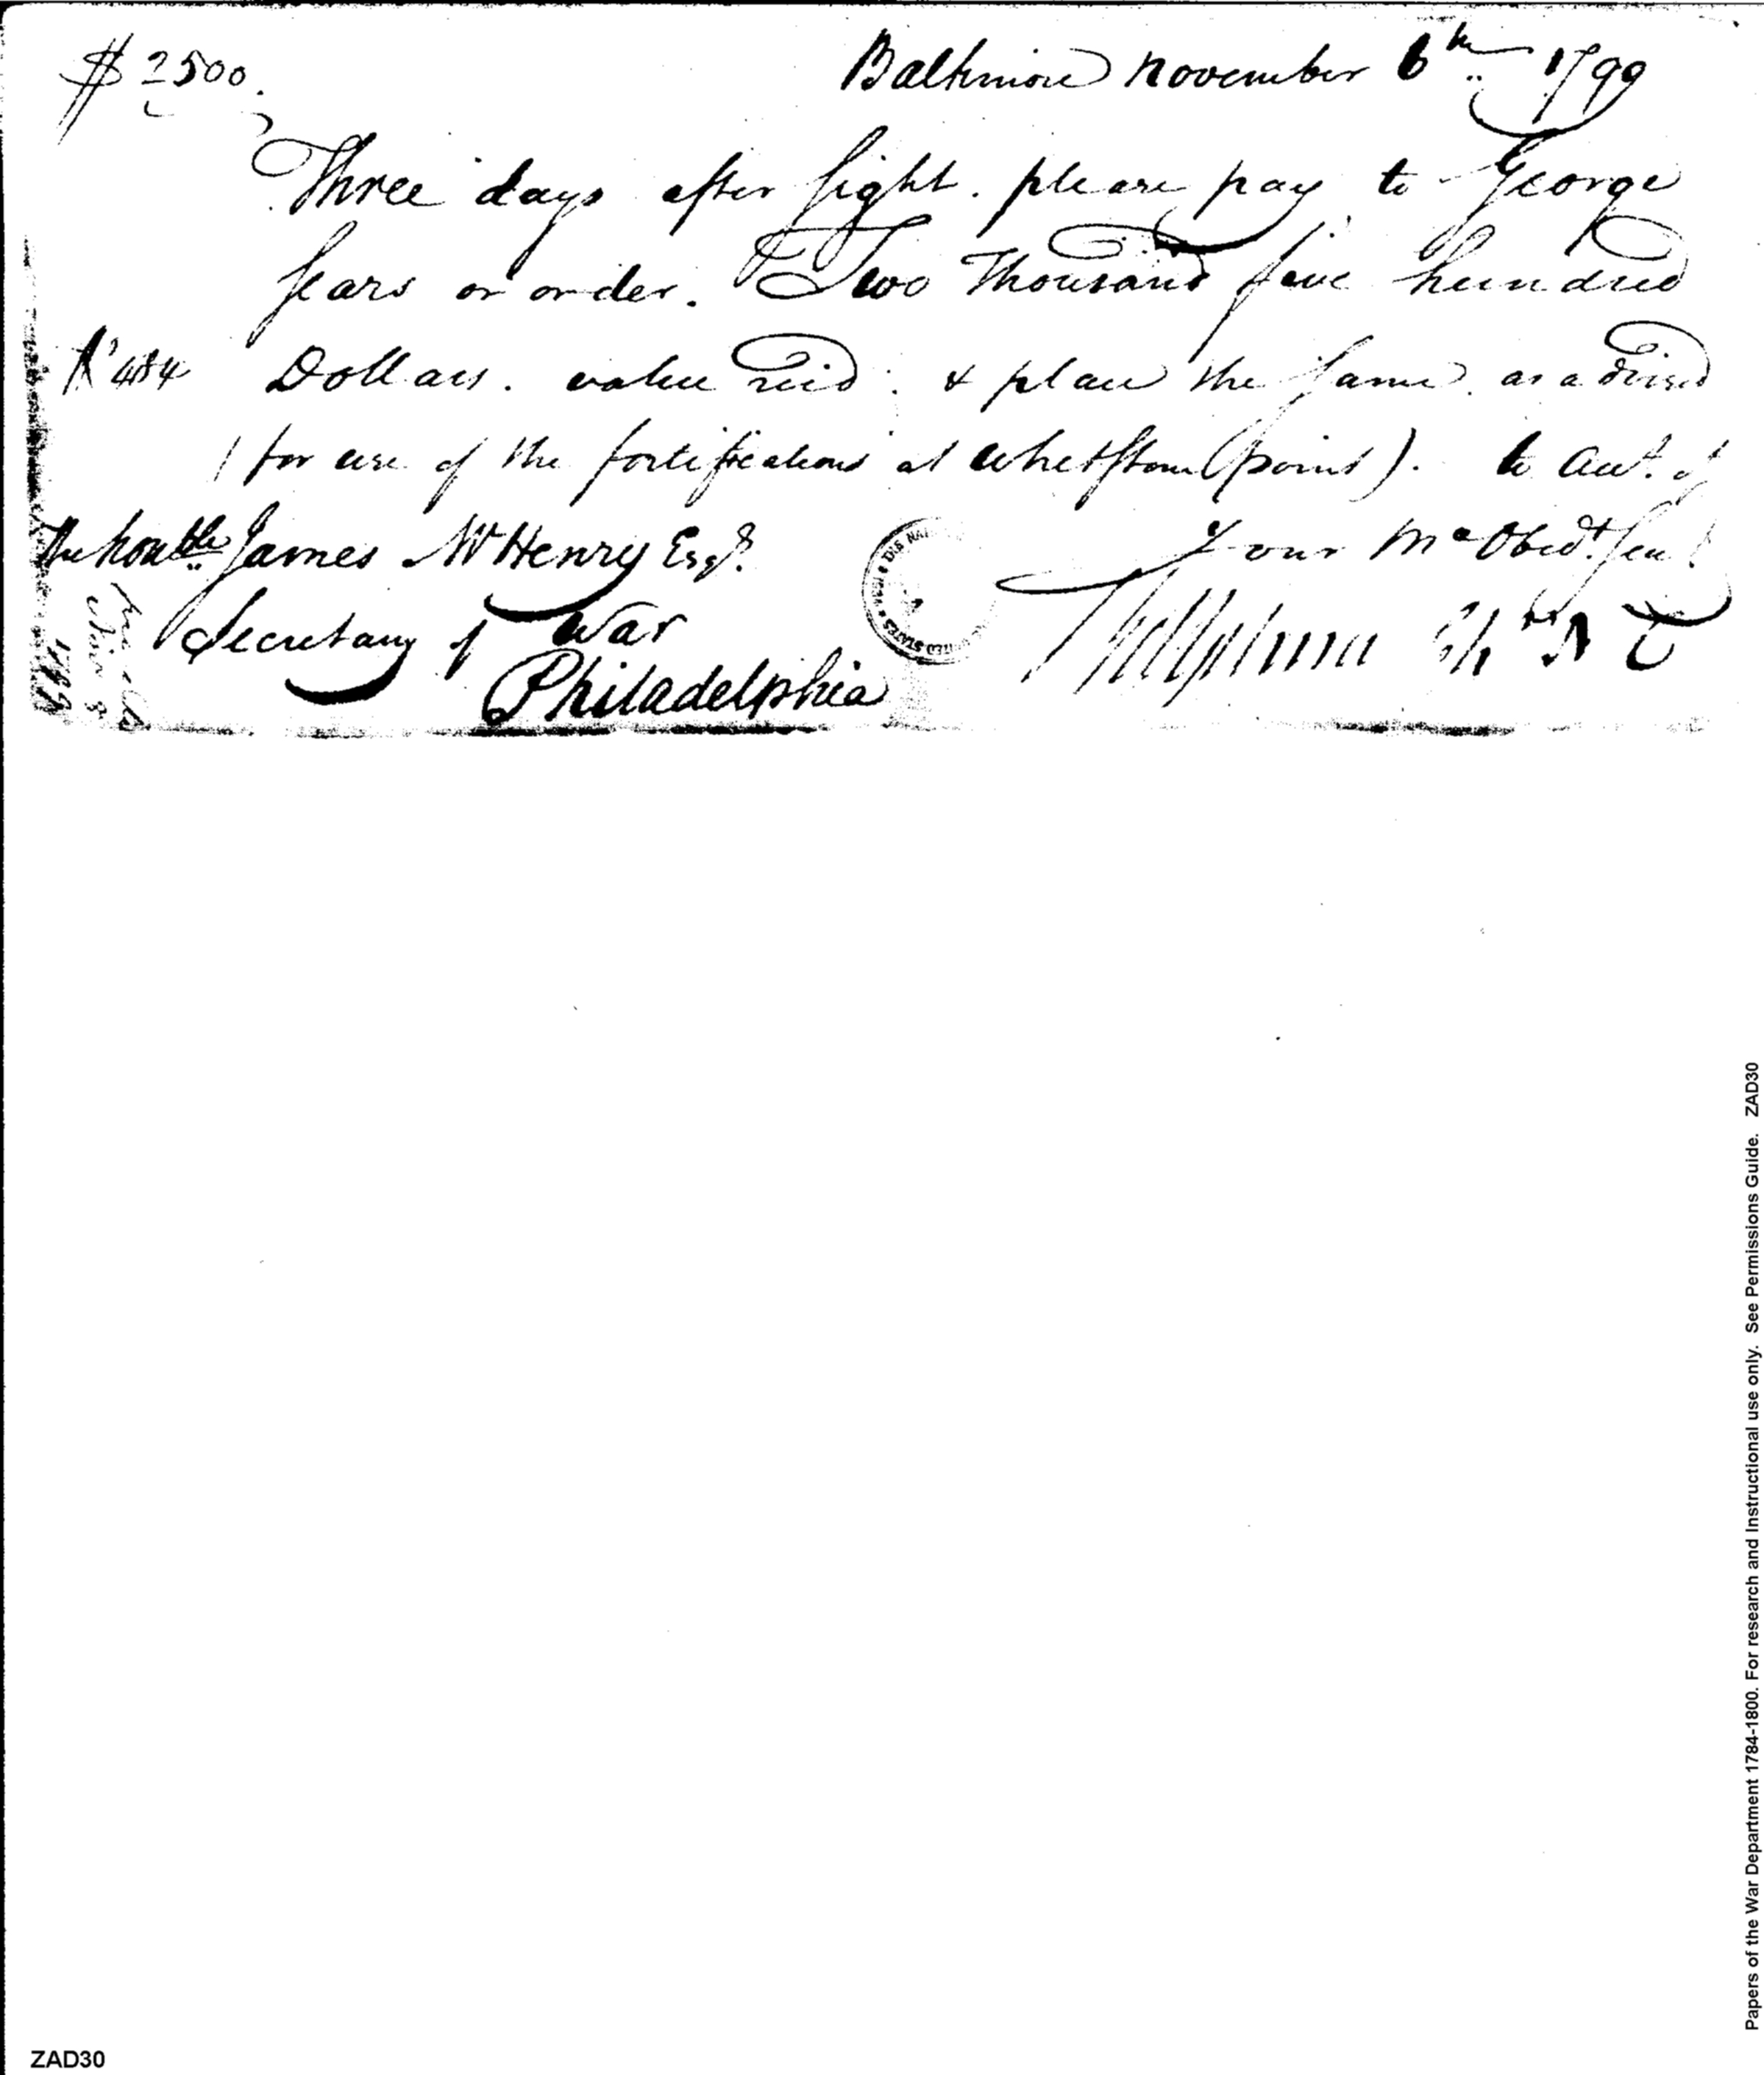 $ 2500.
Baltimore November 6th 1799
Three days after sight. please pay to George
Sears or order. Two Thousand five hundred
N° 484 Dollars. value recd. & place the same as advised
(for use of the fortifications at Whetstone point). to Acct. of
The honble James McHenry Esqr.
Your Mo Obedt. Sevt
Secretary of War
Philadelphia
1799
ZAD30
Papers of the War Department 1784-1800. For research and Instructional use only. See Permissions Guide. ZAD30